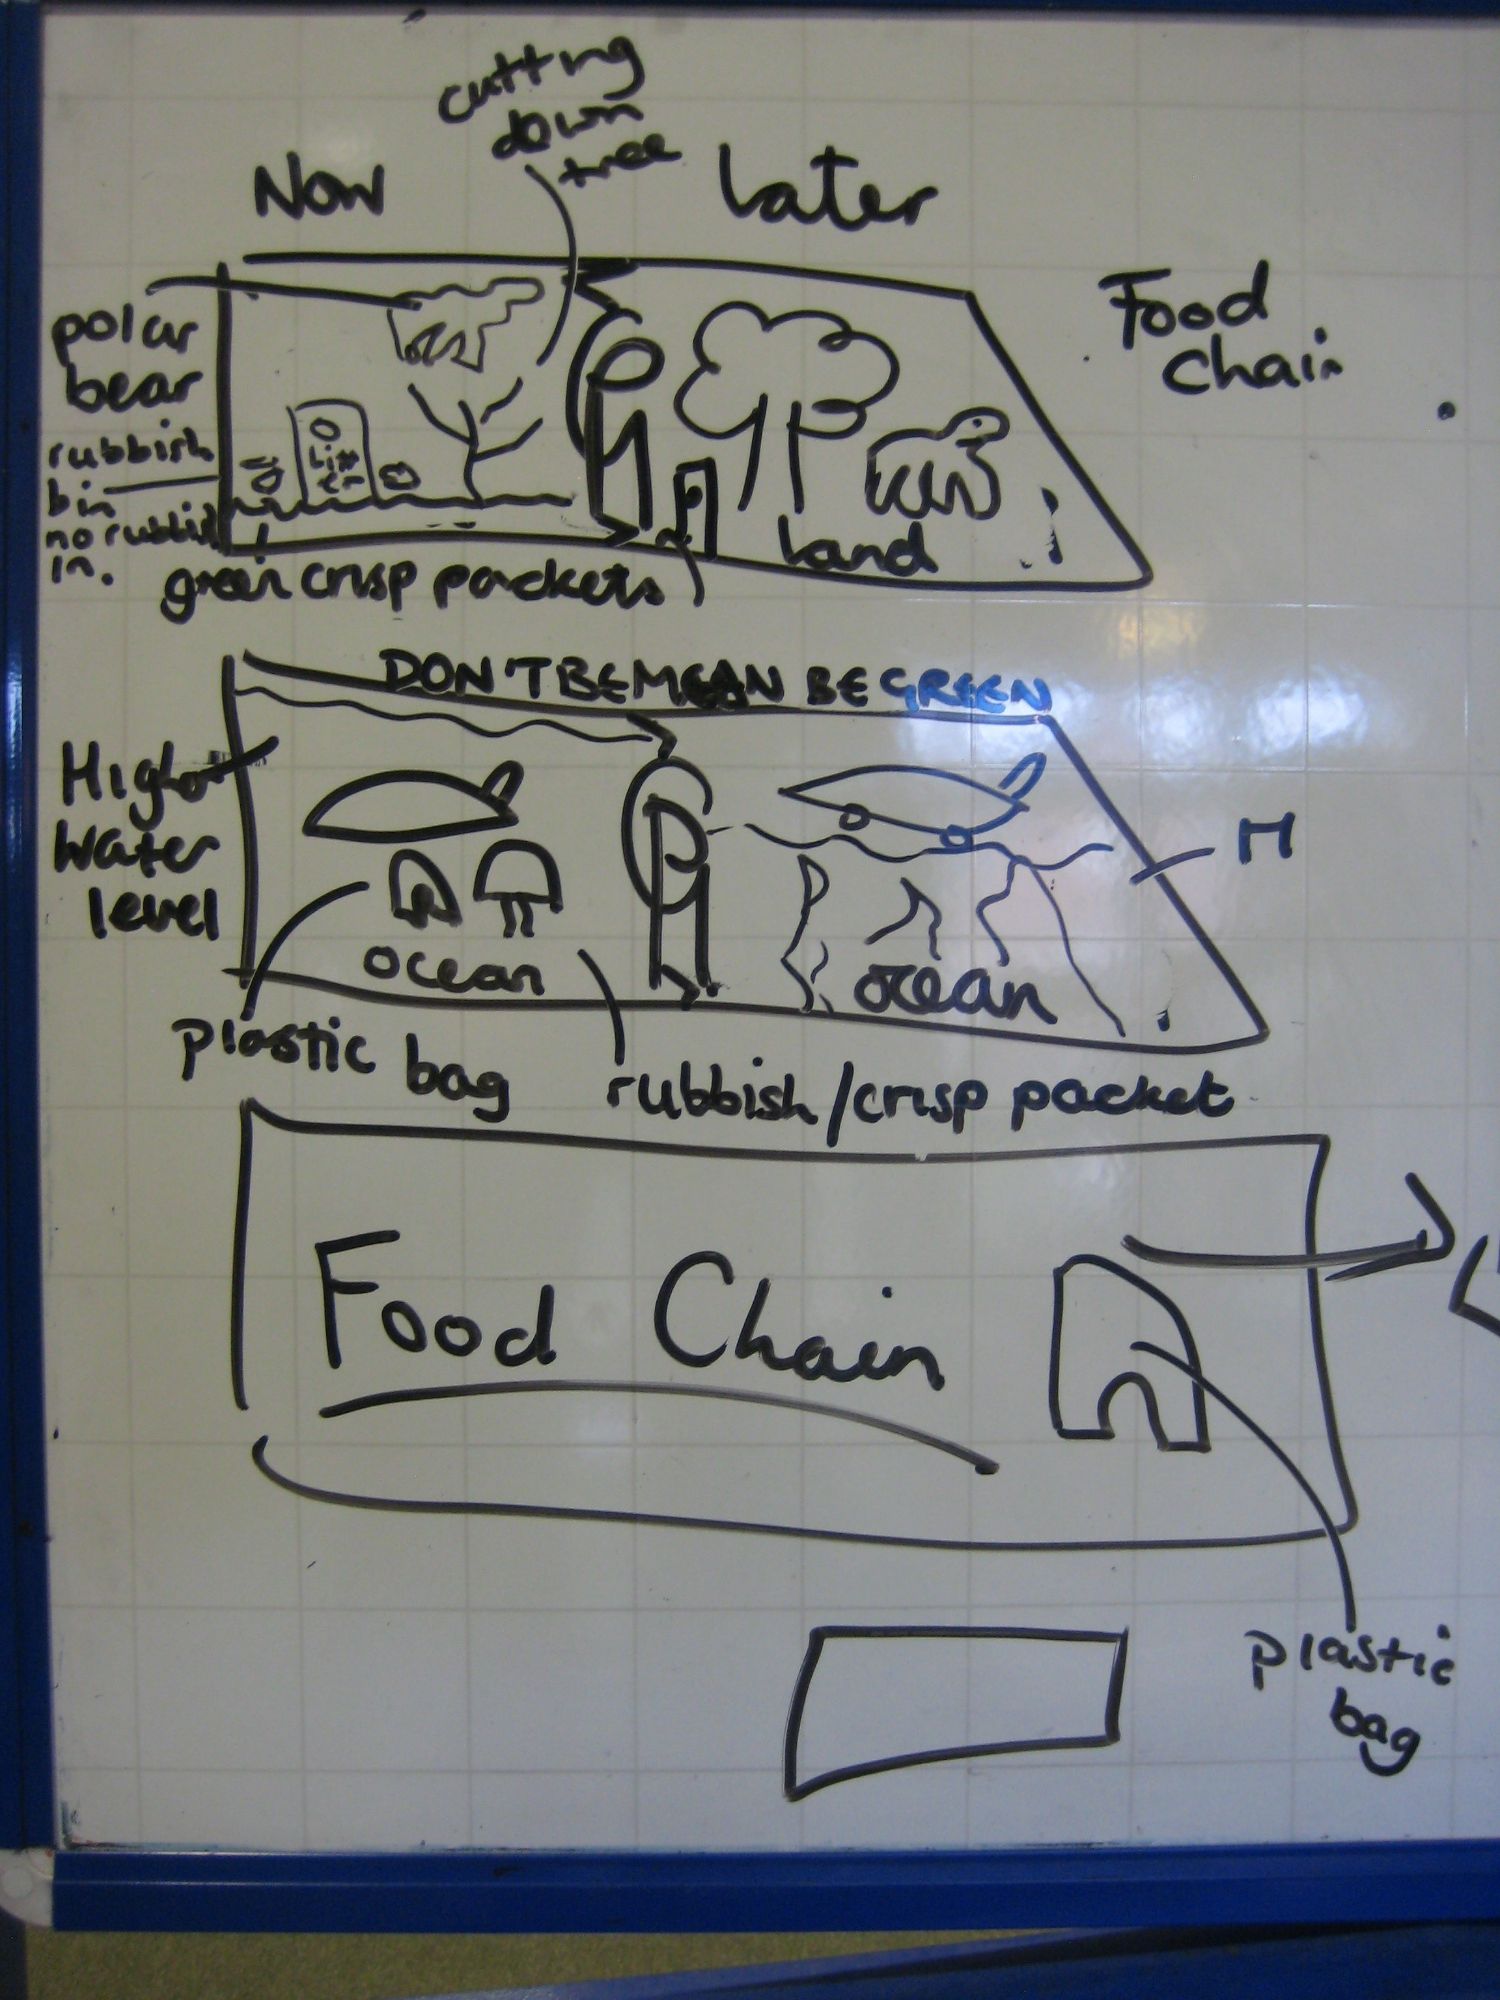 cutting
down
tree
Now
Later
Food
chain
polar
bear
rubbish
bin
no rubbish
in.
Litt
er
Land
green crisp packets
DON'T BE MEAN BE GREEN
Higher
Water
level
ocean
ocean
plastic bag
rubbish/crisp packet
Food Chain
plastic
bag